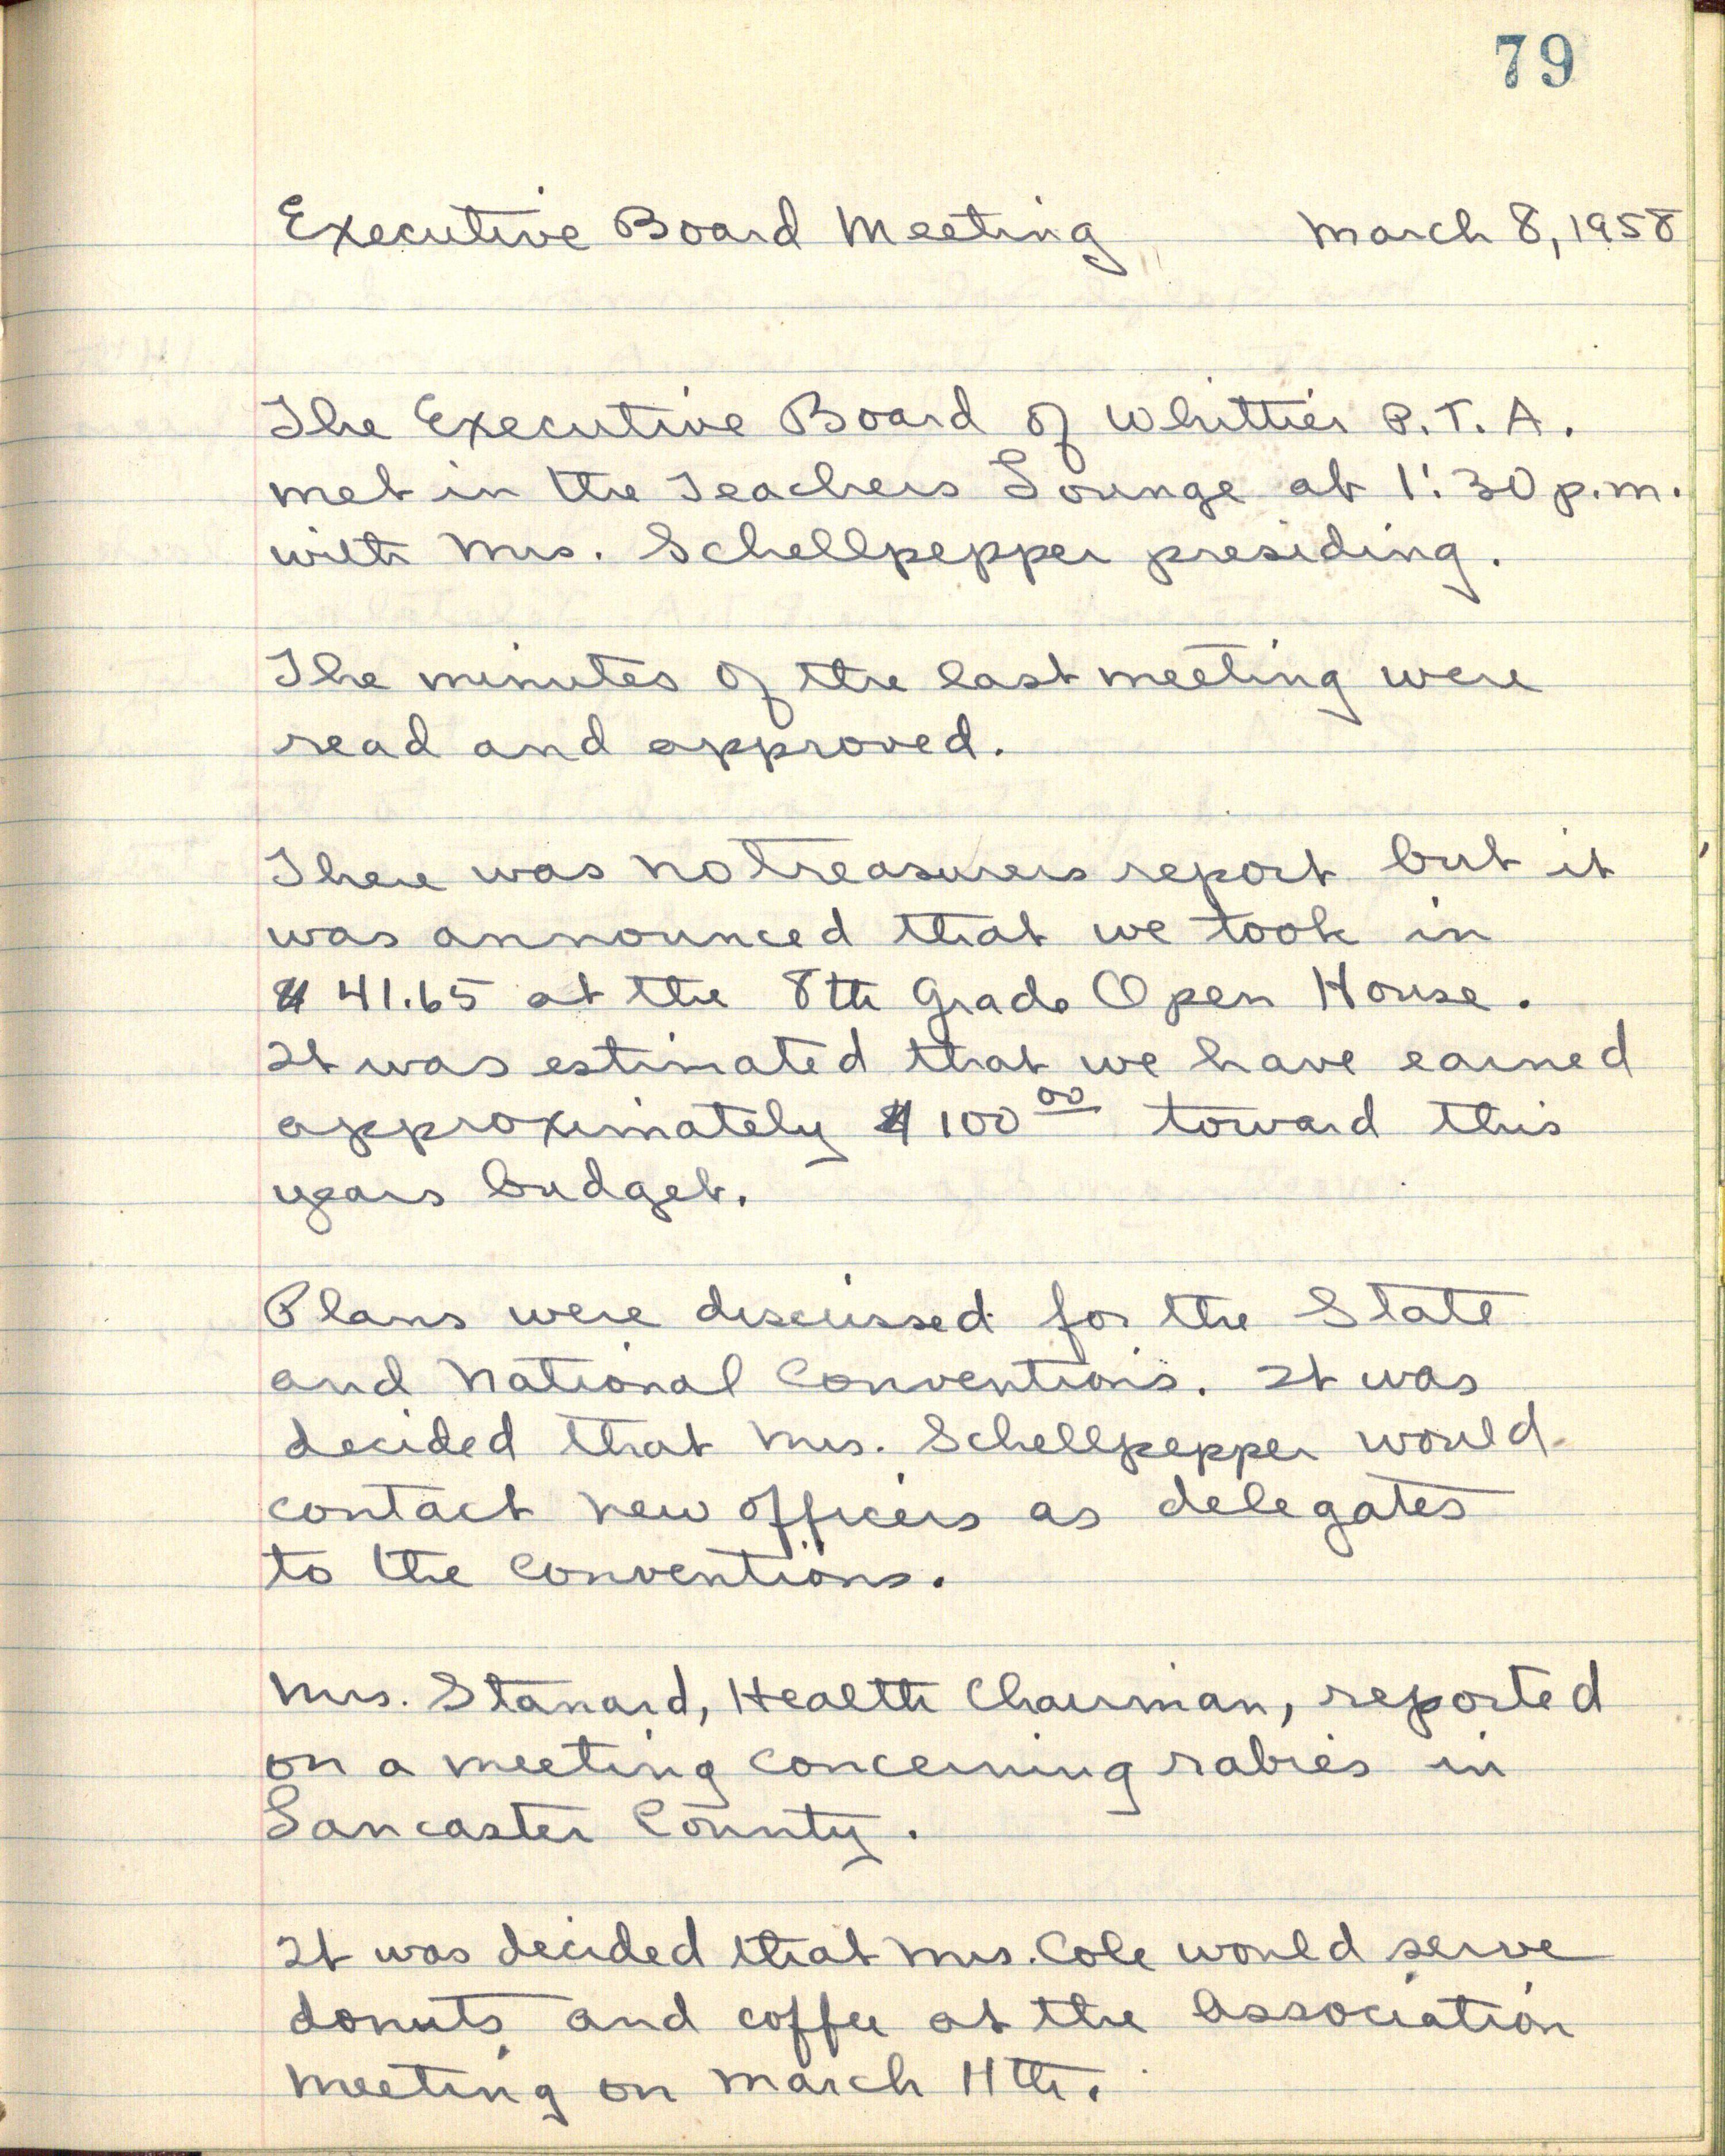 79
Executive Board Meeting March 8, 1958
The Executive Board of Whittier P.T.A.
met in the Teachers Lounge at 1:30 p.m.
with Mrs. Schellpepper presiding.
The minutes of the last meeting were
read and approved.
There was no treasurers report but it
was announced that we took in
$41.65 at the 8th Grade Open House.
It was estimated that we have earned
approximately $100 00 toward this
years budget.
Plans were discussed for the State
and National Conventions. It was
decided that Mrs. Schellpepper would
contact new officers as delegates
to the conventions.
Mrs. Stanard, Health Chairman, reported
on a meeting concerning rabies in
Lancaster County.
It was decided that Mrs. Cole would serve
donuts and coffee at the Association
meeting on March 11th.